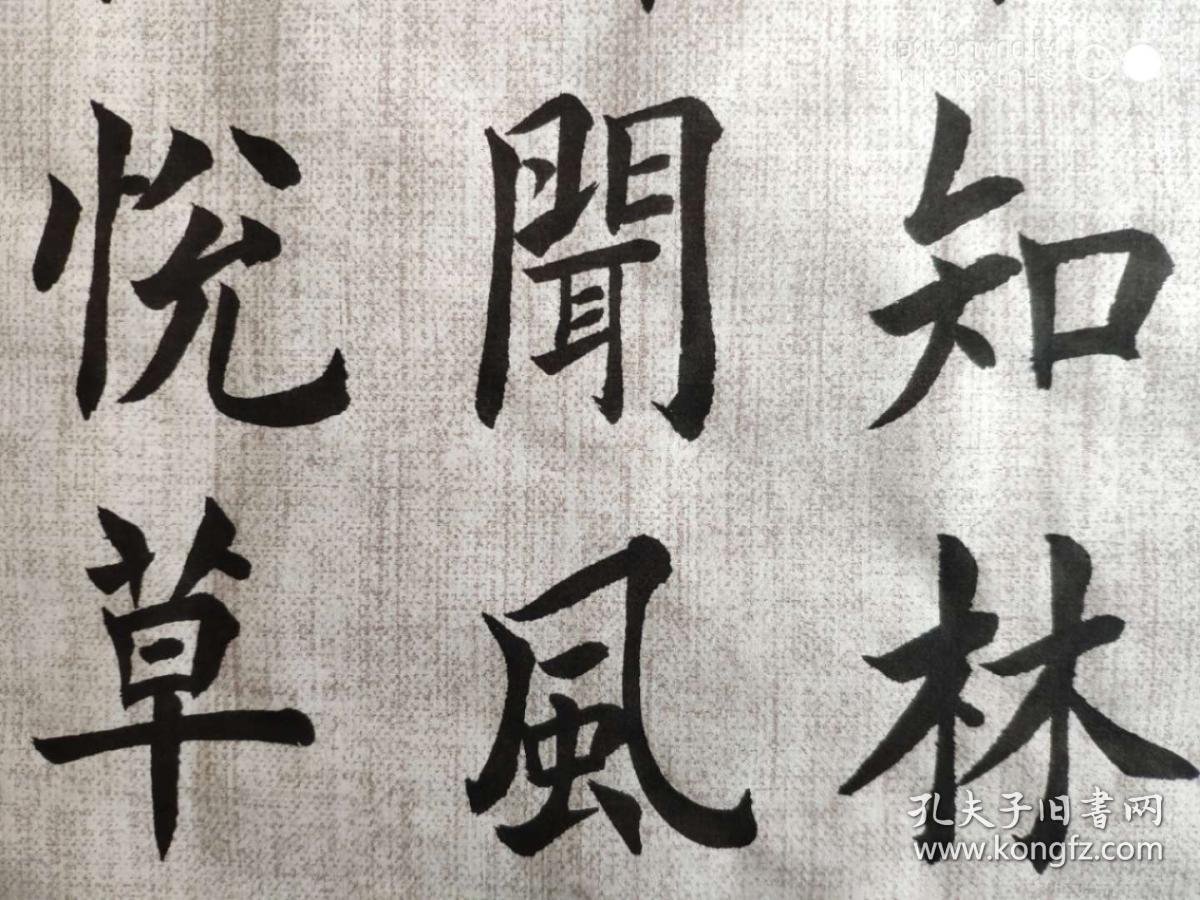 知林
聞風
悅草
孔夫子旧書网
www.kongfz.com